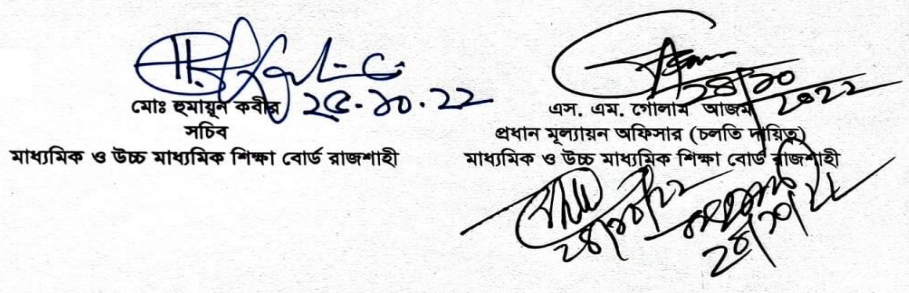 মোঃ হুমায়ূন কবীর ২৫.১০.২২
সচিব
মাধ্যমিক ও উচ্চ মাধ্যমিক শিক্ষা বোর্ড রাজশাহী
২৪/১০/২০২২
এস. এম. গোলাম আজম
প্রধান মূল্যায়ন অফিসার (চলতি দায়িত্ব)
মাধ্যমিক ও উচ্চ মাধ্যমিক শিক্ষা বোর্ড রাজশাহী
২৪/১০/২২
২৪/১০/২২